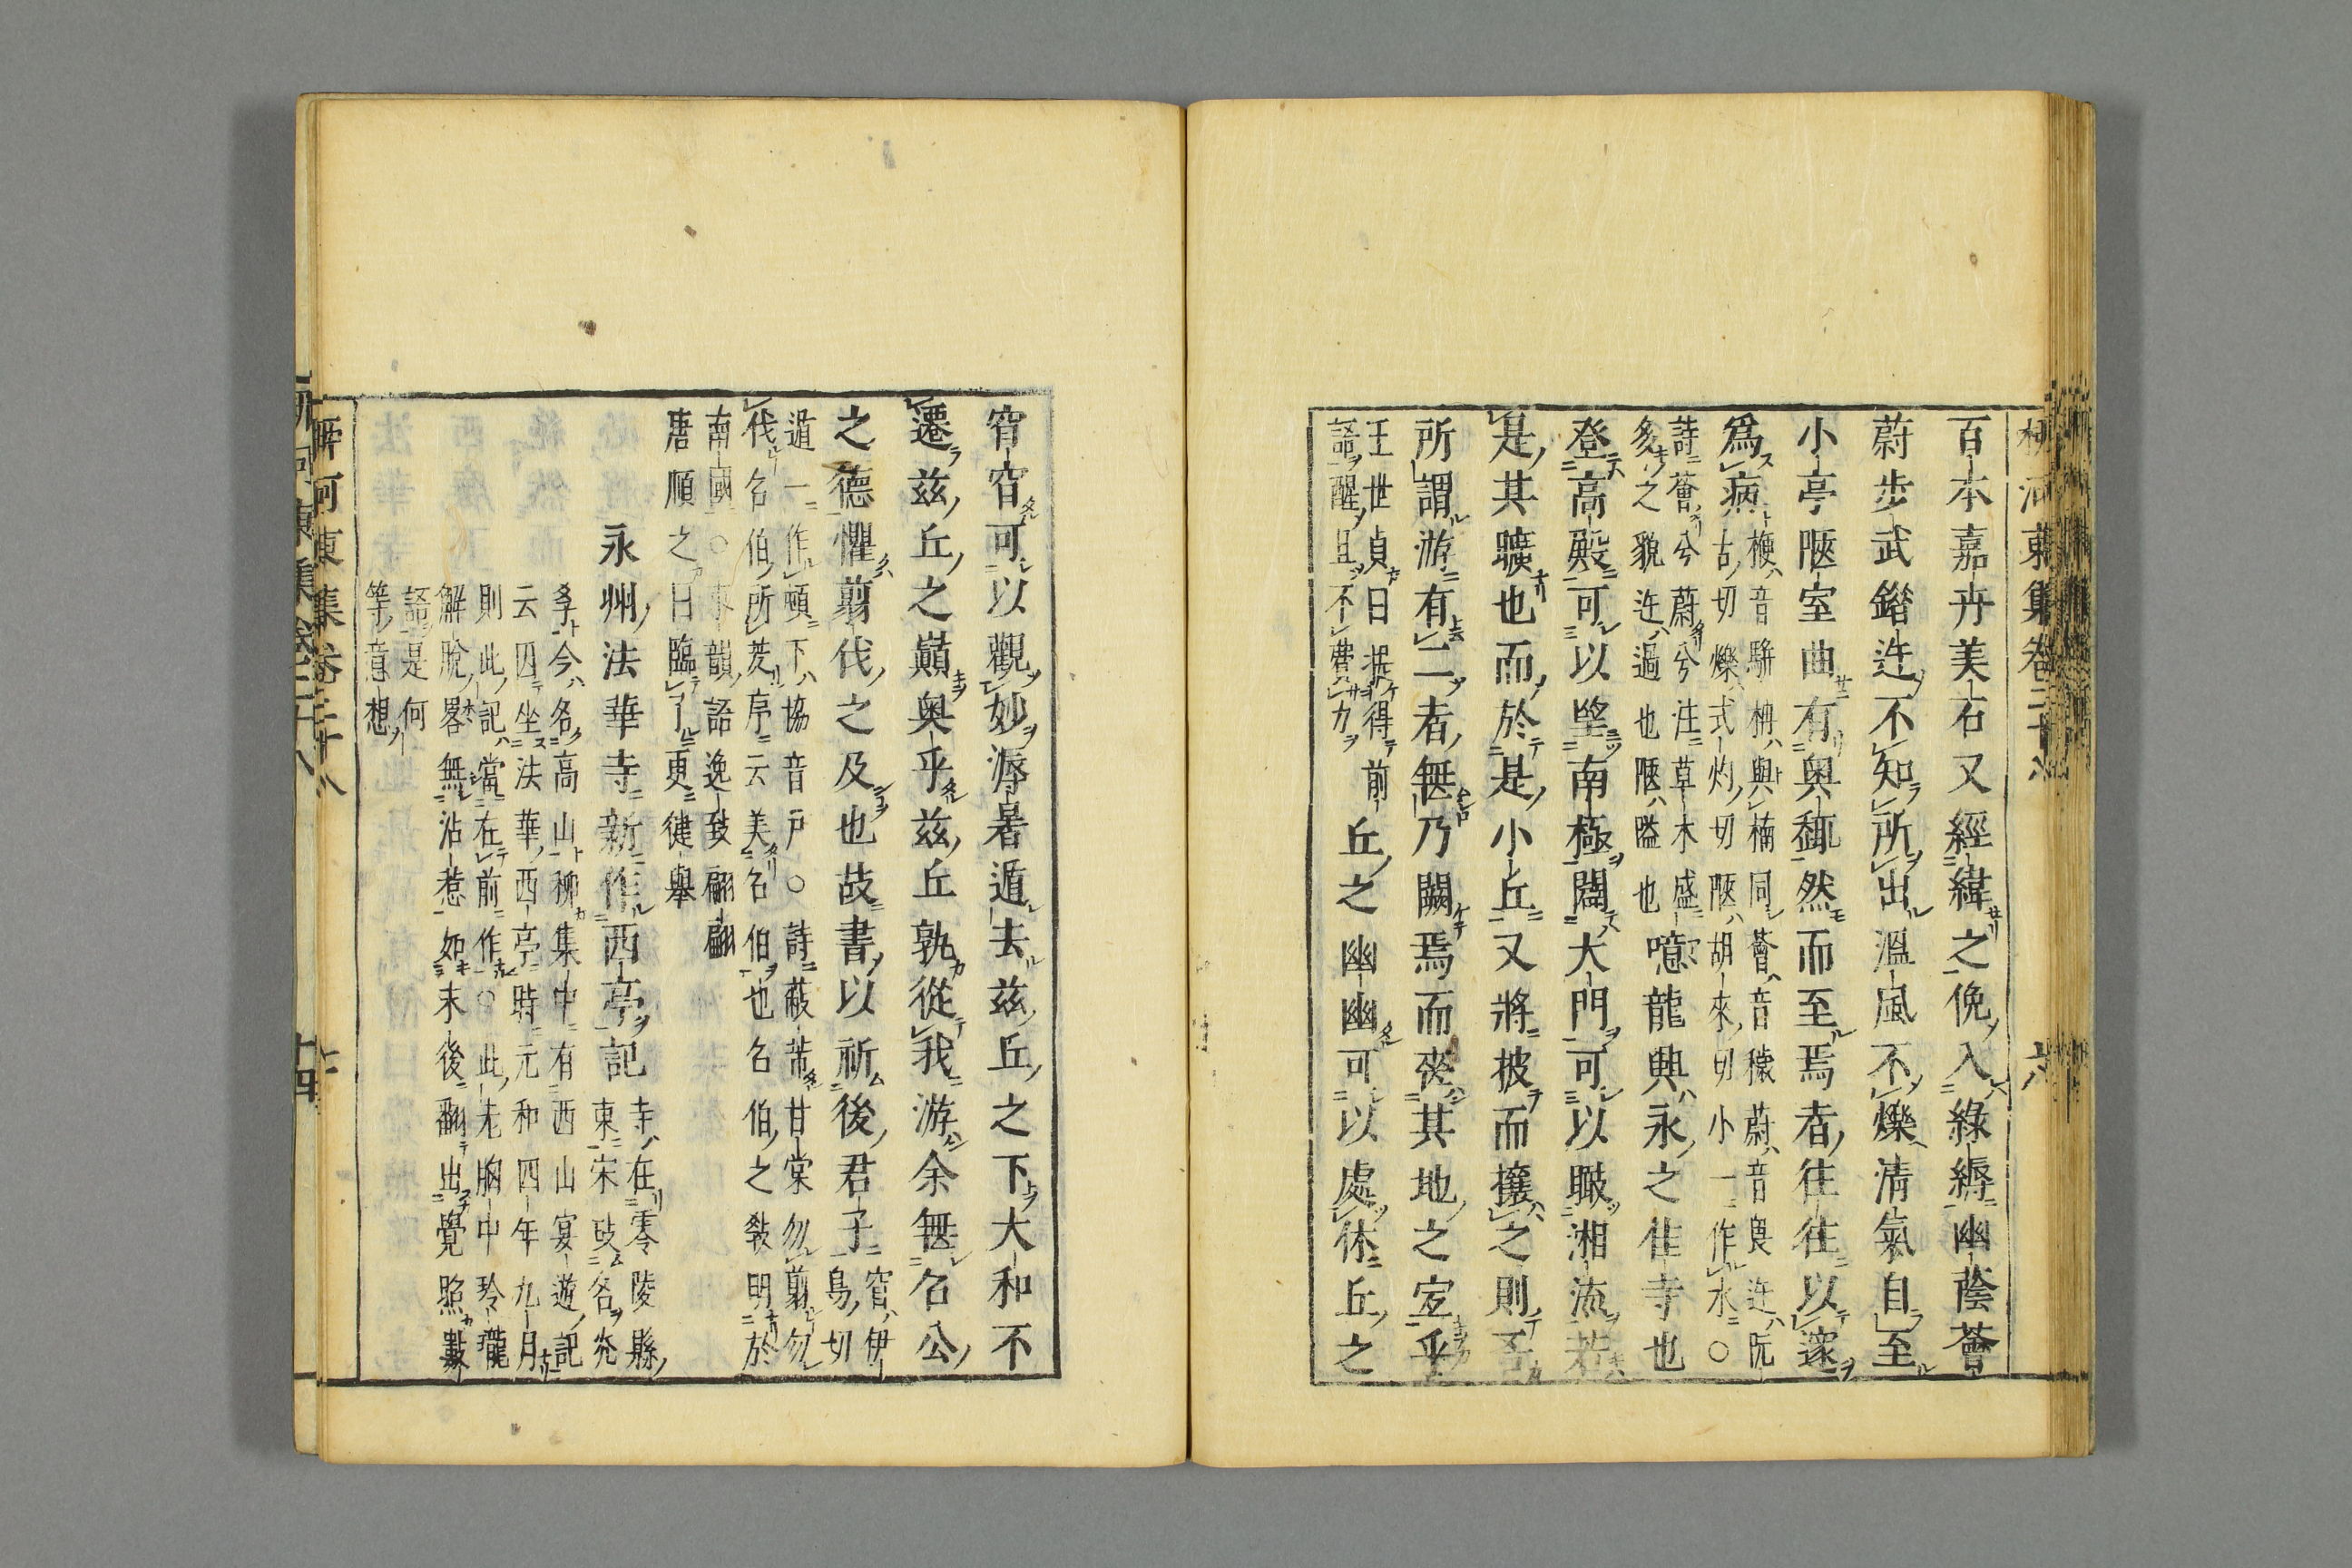 柳河東集卷二十八
六
百本嘉卉美石又經緯之俛入綠縟幽蔭薈
蔚步武錯迕不知所出溫風不爍淸氣自至
小亭陿室曲有奧趣然而至焉者往往以邃
爲病
楩音駢柟與楠同薈音穢蔚音畏迕阮
古切爍式灼切陿胡來切小一作水○
詩薈兮蔚兮注草木盛
多之貌迕過也陿隘也
噫龍興永之佳寺也
登高殿可以望南極闢大門可以瞰湘流若
是其曠也而於是小丘又將披而攘之則吾
所謂游有二者無乃闕焉而喪其地之宜乎
王世貞曰提得前
語醒且不費力
丘之幽幽可以處休丘之
窅窅可以觀妙溽暑遁去茲丘之下大和不
遷茲丘之巓奥乎茲丘孰從我游余無召公
之德懼翦伐之及也故書以祈後君子
窅伊
鳥切
遁一作頓下協音戸○詩蔽芾甘棠勿翦勿
伐召伯所茇序云美召伯也召伯之敎明於
南國○束韻語逸致翩翩
唐順之曰臨了更健舉
永州法華寺新作西亭記
寺在零陵縣
東宋改名㒶
孚今名高山柳集中有西山宴遊記
云四坐法華西亭時元和四年九月
則此記當在前作○此老胸中玲瓏
解脫畧無沾惹如末後翻出覺照數
語是何
等意想
柳河東集卷二十八
十四